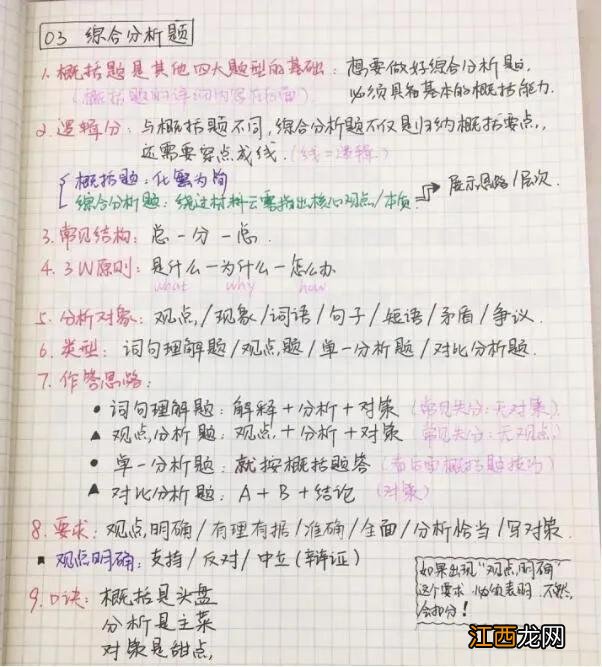 03 综合分析题
1. 概括题是其他四大题型的基础：想要做好综合分析题，
(概括题的详细内容在后面) 必须具备基本的概括能力.
2. 逻辑分：与概括题不同,综合分析题不仅是归纳概括要点,
还需要穿点成线.(线=逻辑)
概括题：化繁为简
综合分析题：绕过材料云雾指出核心观点/本质 → 展示思路/层次.
3. 常见结构：总-分-总.
4. 3W原则：是什么-为什么-怎么办
what why how
5. 分析对象：观点/现象/词语/句子/短语/矛盾/争议.
6. 类型：词句理解题/观点题/单一分析题/对比分析题.
7. 作答思路：
● 词句理解题：解释+分析+对策 (常见失分：无对策)
▲ 观点分析题：观点+分析+对策 (常见失分：无观点)
● 单一分析题：就按概括题答 (看后面概括题技巧)
▲ 对比分析题：A+B+结论 (对策)
8. 要求：观点明确/有理有据/准确/全面/分析恰当/写对策.
■ 观点明确：支持/反对/中立(辩证)
如果出现“观点明确”
这个要求 必须表明 不然
会扣分！
9. 口诀：概括是头盘
分析是主菜
对策是甜点.
江西龙网